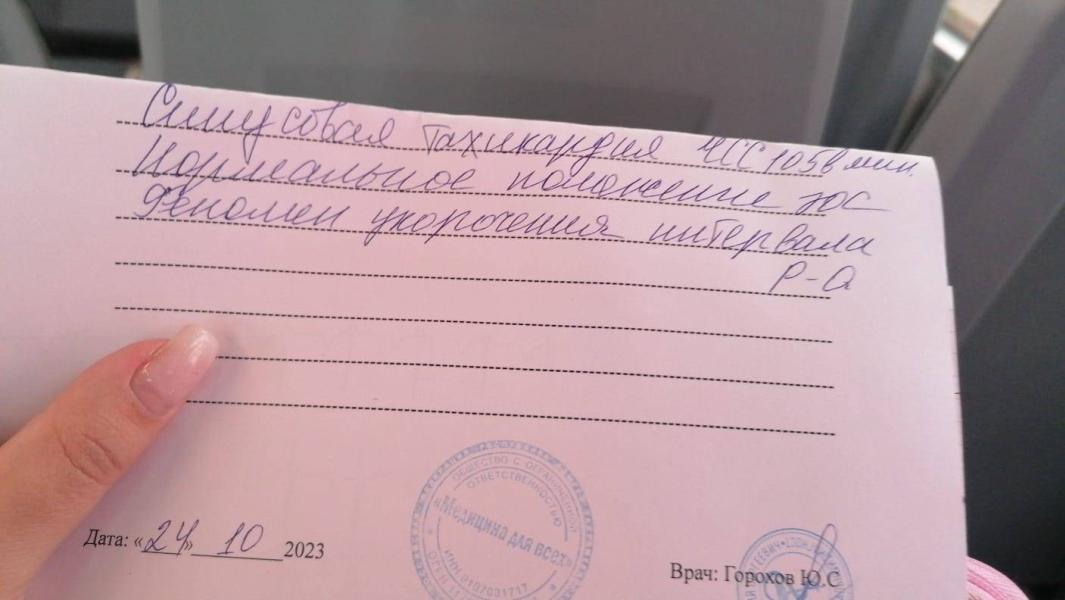 Синусовая тахикардия ЧСС 105 в мин.
Нормальное положение ЭОС
Феномен укорочения интервала
P-Q
ОБЩЕСТВО С ОГРАНИЧЕННОЙ
ОТВЕТСТВЕННОСТЬЮ
«Медицина для всех»
ИНН 0107031717
Дата: «24» 10 2023
Врач: Горохов Ю.С